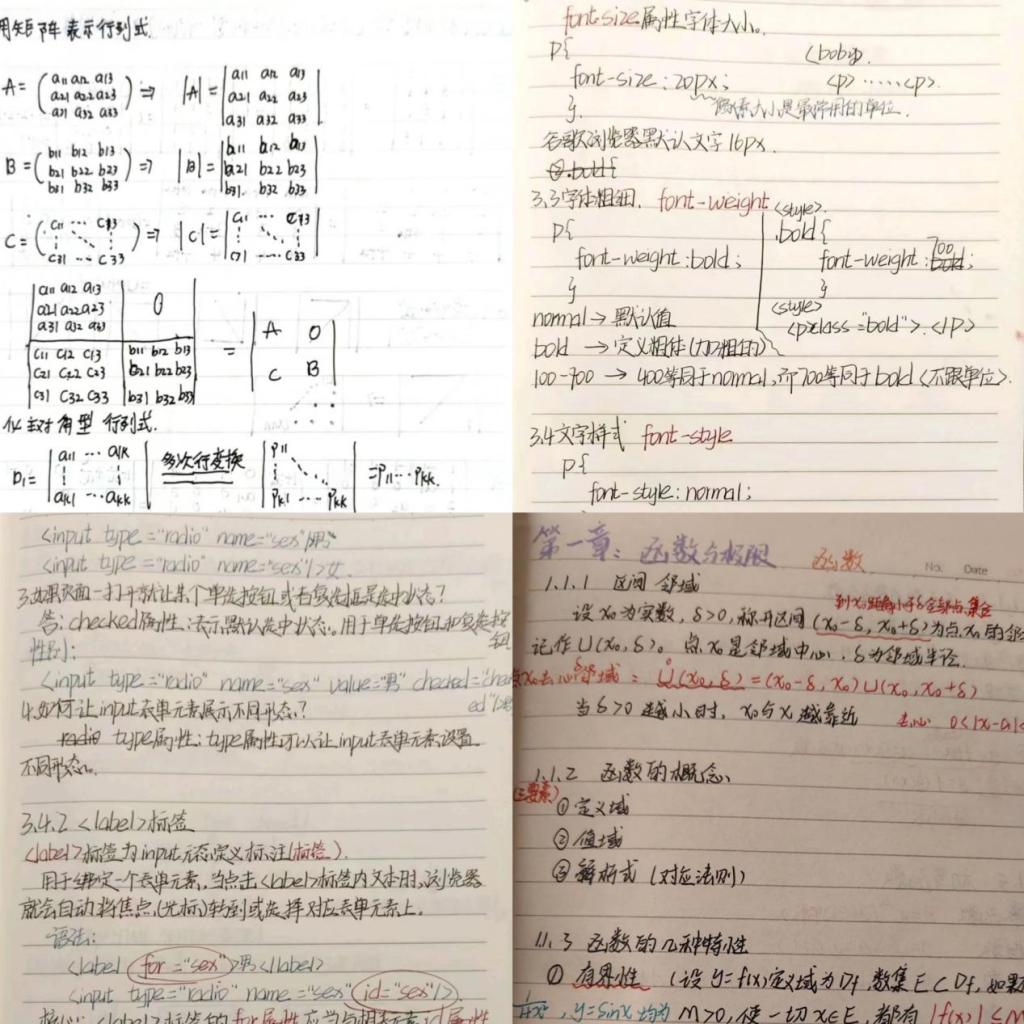 用矩阵表示行列式.
A= (a11 a12 a13 ⇒ |A|= |a11 a12 a13|
a21 a22 a23 a21 a22 a23
a31 a32 a33) a31 a32 a33
B= (b11 b12 b13 ⇒ |B|= |b11 b12 b13|
b21 b22 b23 b21 b22 b23
b31 b32 b33) b31 b32 b33
C= (c11 ⋯ c13 ⇒ |C|= |c11 ⋯ c13|
c31 ⋯ c33) ⋯ c33
a11 a12 a13
a21 a22 a23 0
a31 a32 a33 = |A 0|
c11 c12 c13 b11 b12 b13 |C B|
c21 c22 c23 b21 b22 b23
c31 c32 c33 b31 b32 b33
主对角型 行列式.
D1= |a11 ⋯ a1k| 多次行变换 |p11 | =p11⋯pkk.
ak1 ⋯ akk pk1 ⋯ pkk
font size 属性字体大小。
p{
font-size:20px; <p>⋯⋯<p>.
}. 像素大小是最常用的单位.
谷歌浏览器默认文字16px.
.bold{
3.3字体粗细. font-weight
<style>.
p{ .bold{
font-weight:bold; font-weight:700;
} }
<style>
normal→默认值 <p class="bold">.</p>
bold →定义粗体(加粗的)
100-900 → 400等同于normal,而700等同于bold<不跟单位>.
3.4文字样式 font-style
p{
font-style:normal;
<input type="radio" name="sex"/>男
<input type="radio" name="sex"/>女
3.如果页面一打开就让某个单选按钮或者复选框是选中状态?
答:checked属性:表示默认选中状态.用于单选按钮和复选按钮
性别:
<input type="radio" name="sex" value="男" checked="checked"
4.如何让input表单元素展示不同形态?
type属性:type属性可以让input表单元素设置
不同形态.
3.4.2 <label>标签
<label>标签为input元素定义标注(标签).
用于绑定一个表单元素,当点击<label>标签内文本时,浏览器
就会自动将焦点(光标)转到或选择对应表单元素上.
语法:
<label for="sex">男</label>
<input type="radio" name="sex" id="sex"/>.
核心:<label>标签的for属性应当与相关元素id属性
第一章:函数与极限 函数
No. Date
1.1.1 区间 邻域
到x0距离小于δ全部点集合
设x0为实数,δ>0,称开区间(x0-δ, x0+δ)为点x0的邻
记作U(x0,δ)。点x0是邻域中心,δ为邻域半径.
点x0去心δ邻域:Ů(x0,δ)=(x0-δ,x0)∪(x0,x0+δ)
当δ>0越小时,x0与x越靠近 去心 0<|x-a|<
1.1.2 函数的概念、
(三要素)
①定义域
②值域
③解析式(对应法则)
1.1.3 函数的几种特性
①有界性 (设y=f(x)定义域为Df,数集E⊂Df,如果
, y=sinx均为 M>0,使一切x∈E,都有|f(x)|≤M